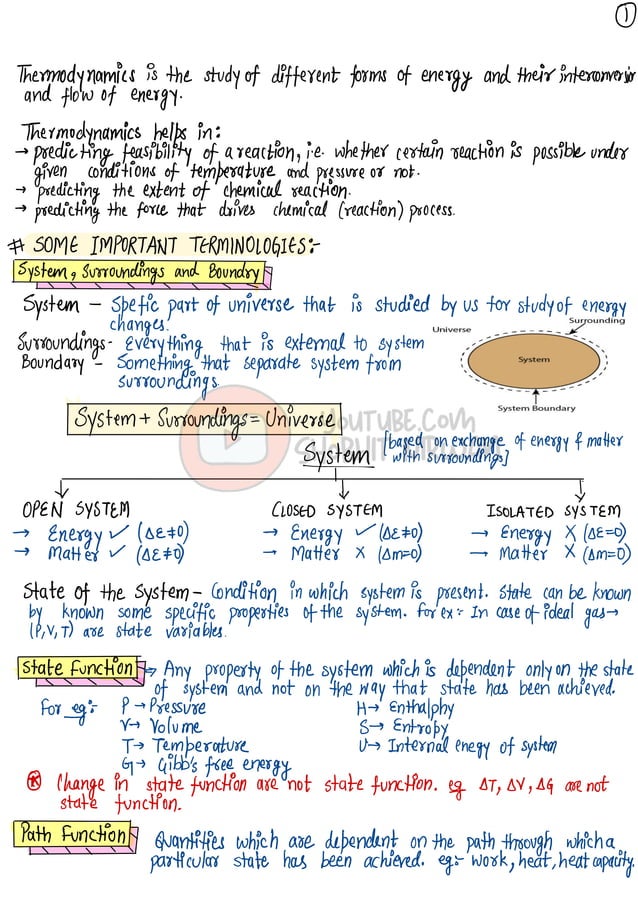 1
Thermodynamics is the study of different forms of energy and their interconversion
and flow of energy.
Thermodynamics helps in:
→ predicting feasibility of a reaction, i.e. whether certain reaction is possible under
given conditions of temperature and pressure or not.
→ predicting the extent of chemical reaction.
→ predicting the force that drives chemical (reaction) process.
# SOME IMPORTANT TERMINOLOGIES:-
System, Surroundings and Boundry
System – Spefic part of universe that is studied by us for study of energy
changes.
Surroundings- Everything that is external to system
Boundary – Something that separate system from
surroundings.
Universe
Surrounding
System
System Boundary
System + Surroundings = Universe
YOUTUBE.COM
System [based on exchange of energy & matter
with surroundings]
OPEN SYSTEM CLOSED SYSTEM ISOLATED SYSTEM
→ Energy ✓ (ΔE≠0) → Energy ✓ (ΔE≠0) → Energy X (ΔE=0)
→ Matter ✓ (ΔE≠0) → Matter X (Δm=0) → Matter X (Δm=0)
State of the System – Condition in which system is present. State can be known
by known some specific properties of the system. for ex:- In case of ideal gas→
(P,V,T) are state variables.
State Function → Any property of the system which is dependent only on the state
of system and not on the way that state has been achieved.
For eg:- P → Pressure H → Enthalphy
V → Volume S → Entropy
T → Temperature U → Internal enegy of system
G → Gibb's free energy
* Change in state function are not state function. eg ΔT, ΔV, ΔG are not
state function.
Path Function Quantities which are dependent on the path through which a
particular state has been achieved. eg:- work, heat, heat capacity.